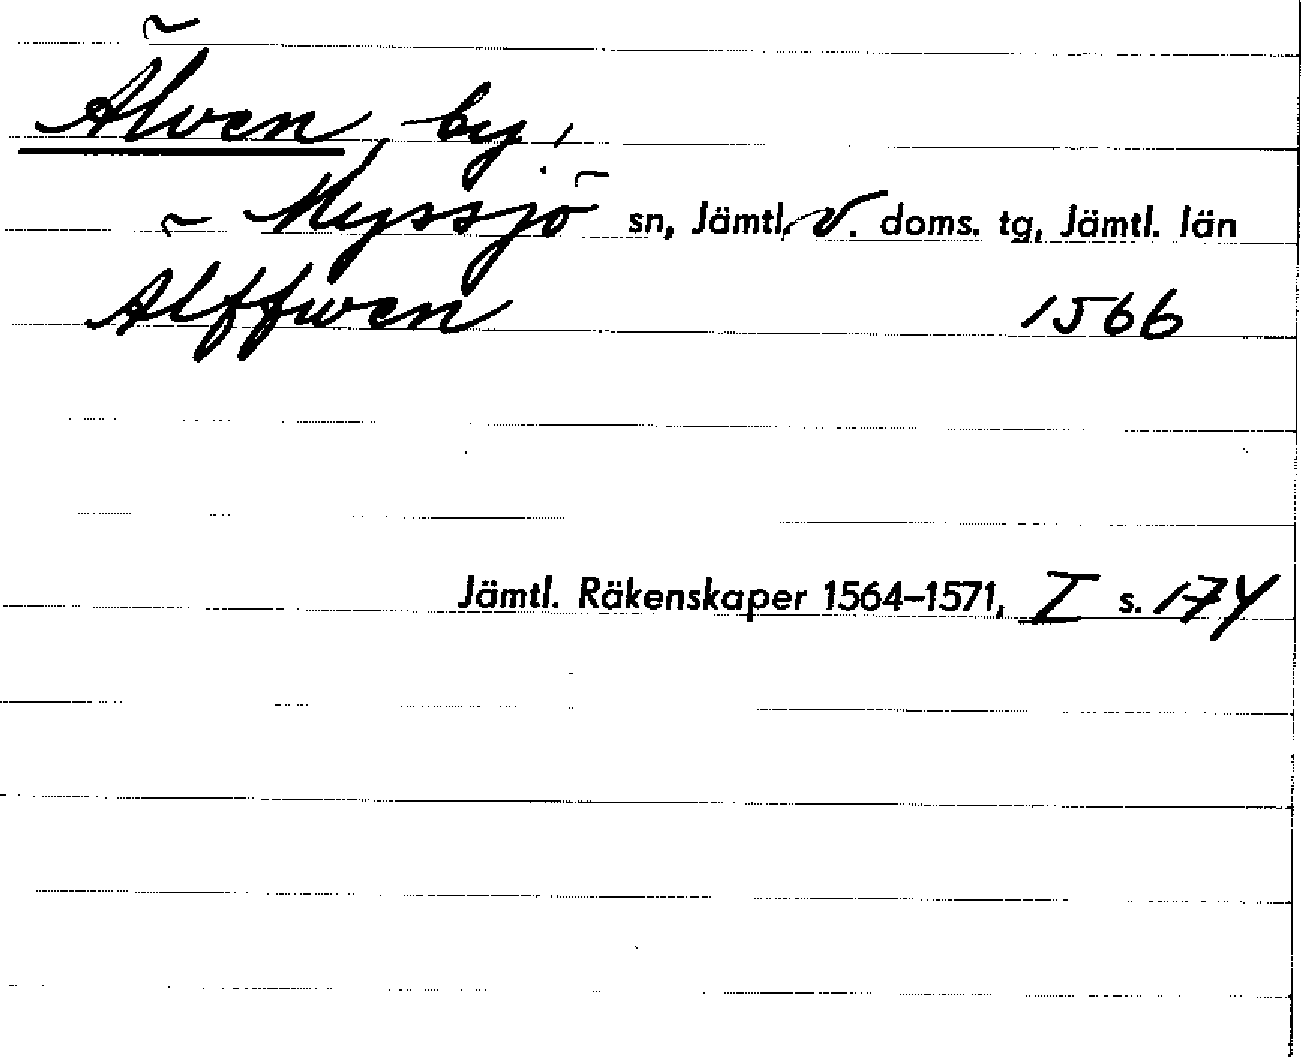 Älven by,
Myssjö sn, Jämtl. v. doms. tg, Jämtl. län
Älffwen 1566
Jämtl. Räkenskaper 1564–1571, I s. 174